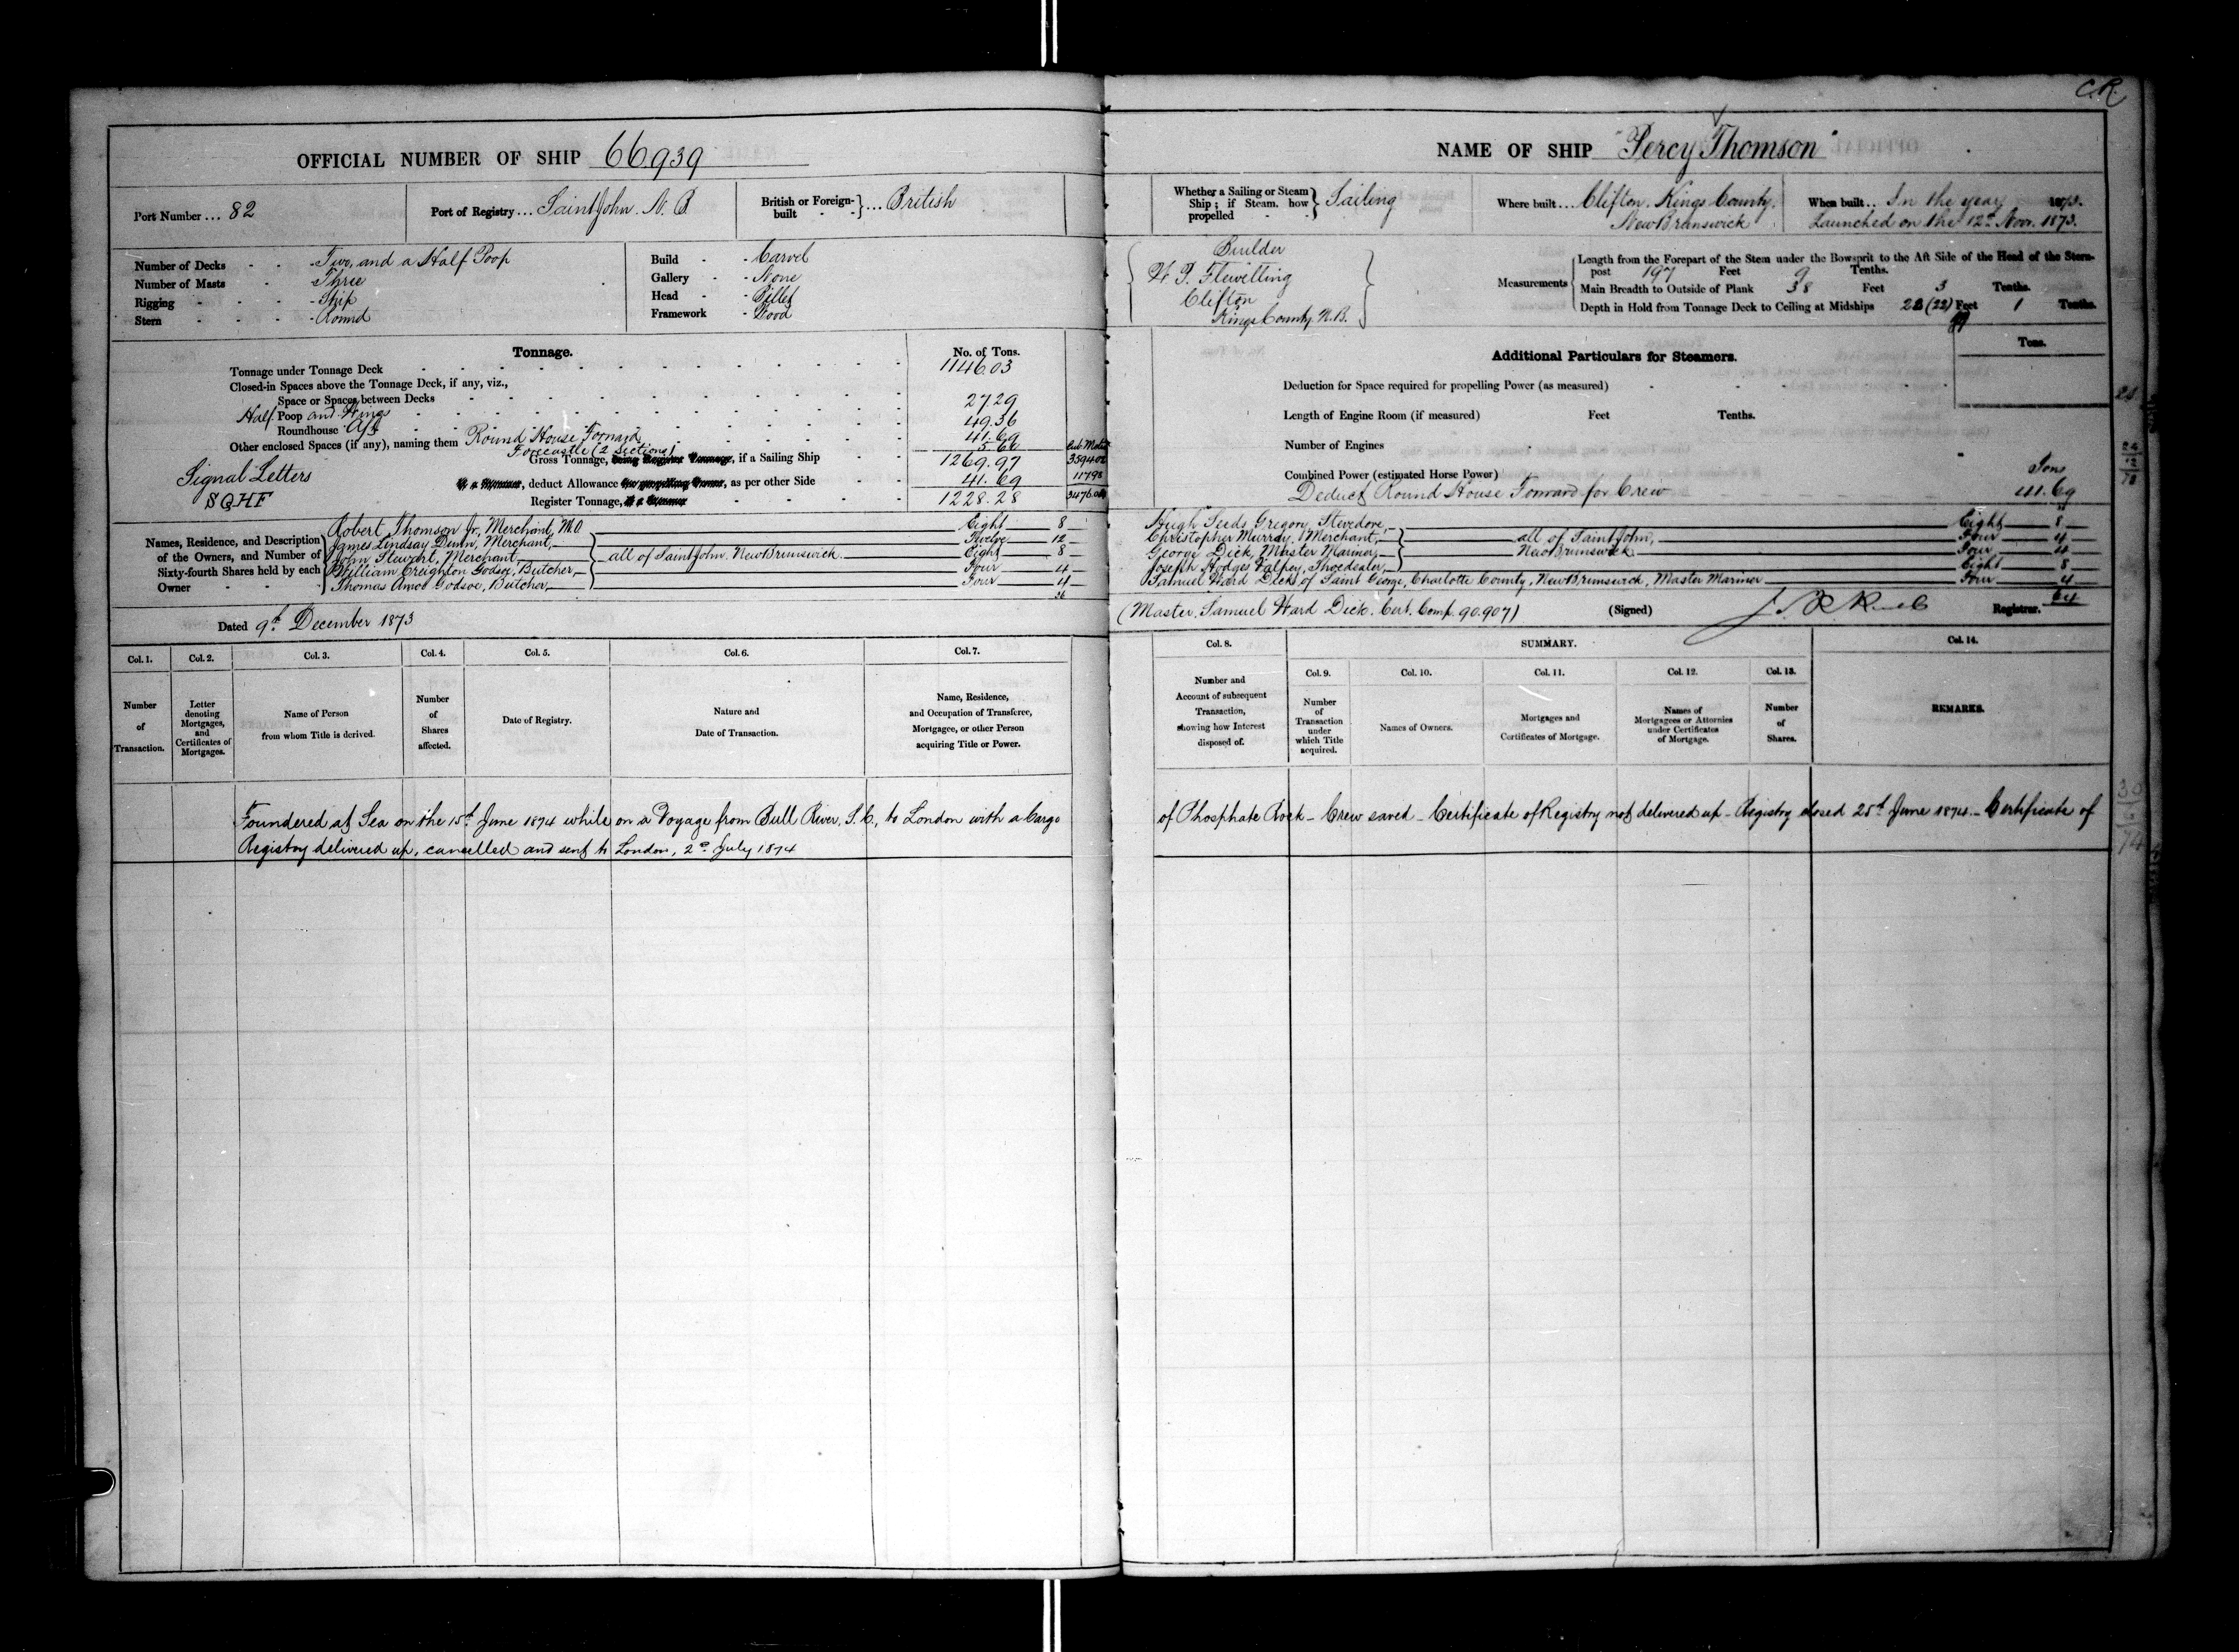 C.R.
OFFICIAL NUMBER OF SHIP 66939
Port Number ... 82
Port of Registry ... Saint John. N. B
British or Foreign-built } ... British
Number of Decks - - - Two, and a Half Poop
Number of Masts - Three
Rigging - - - Ship
Stern - - - - Round
Build - - Carvel
Gallery - - None
Head - - Billet
Framework - Wood
Tonnage.
No. of Tons.
Tonnage under Tonnage Deck 1146.03
Closed-in Spaces above the Tonnage Deck, if any, viz.,
Space or Spaces between Decks
Half Poop and Wings 27.29
Roundhouse Aft 49.36
Other enclosed Spaces (if any), naming them Round House Forward 41.69
Forecastle (2 Sections) 5.60
Gross Tonnage, if a Sailing Ship 1269.97
deduct Allowance, as per other Side 41.69
Register Tonnage, 1228.28
Signal Letters
SQHF
Names, Residence, and Description of the Owners, and Number of Sixty-fourth Shares held by each Owner
Robert Thomson Jr, Merchant, M.O Eight 8
James Lindsay Dunn, Merchant, Twelve 12
John Stewart, Merchant, all of Saint John. New Brunswick. Eight 8
William Creighton Godsoe, Butcher, Four 4
Thomas Amos Godsoe, Butcher, Four 4
36
Dated 9th December 1873
Col. 1. Col. 2. Col. 3. Col. 4. Col. 5. Col. 6. Col. 7.
Number of Transaction.
Letter denoting Mortgages, and Certificates of Mortgages.
Name of Person from whom Title is derived.
Number of Shares affected.
Date of Registry.
Nature and Date of Transaction.
Name, Residence, and Occupation of Transferee, Mortgagee, or other Person acquiring Title or Power.
Foundered at Sea on the 15th June 1874 while on a Voyage from Bull River, S.C., to London with a Cargo
Registry delivered up, cancelled and sent to London, 2nd July 1874
NAME OF SHIP "Percy Thomson"
Whether a Sailing or Steam Ship; if Steam, how propelled } Sailing
Where built ... Clifton. Kings County. New Brunswick
When built .. In the year 1873.
Launched on the 12th Novr. 1873.
Builder
Clifton
Kings County N.B.
Measurements
Length from the Forepart of the Stem under the Bowsprit to the Aft Side of the Head of the Stern-
post 197 Feet 9 Tenths.
Main Breadth to Outside of Plank 38 Feet 3 Tenths.
Depth in Hold from Tonnage Deck to Ceiling at Midships (22) Feet 1 Tenths.
Additional Particulars for Steamers.
Tons.
Deduction for Space required for propelling Power (as measured)
Length of Engine Room (if measured) Feet Tenths.
Number of Engines
Combined Power (estimated Horse Power)
Tons
Deduct Round House Forward for Crew 41.69
Hugh Seeds Gregory, Stevedore, Eight 8
Christopher Murray, Merchant, all of Saint John, Four 4
George Dick, Master Mariner, New Brunswick Four 4
Joseph Hodges Valpey, Shoedealer, Eight 8
Samuel Ward Dick, of Saint George, Charlotte County, New Brunswick, Master Mariner Four 4
64
(Master, Samuel Ward Dick. Cert. Comp. 90.907)
(Signed) Registrar.
Col. 8. SUMMARY. Col. 14.
Col. 9. Col. 10. Col. 11. Col. 12. Col. 13.
Number and Account of subsequent Transaction, showing how Interest disposed of.
Number of Transaction under which Title acquired.
Names of Owners.
Mortgages and Certificates of Mortgage.
Names of Mortgagees or Attornies under Certificates of Mortgage.
Number of Shares.
REMARKS.
of Phosphate Rock - Crew saved - Certificate of Registry not delivered up - Registry closed 25th June 1874. - Certificate of